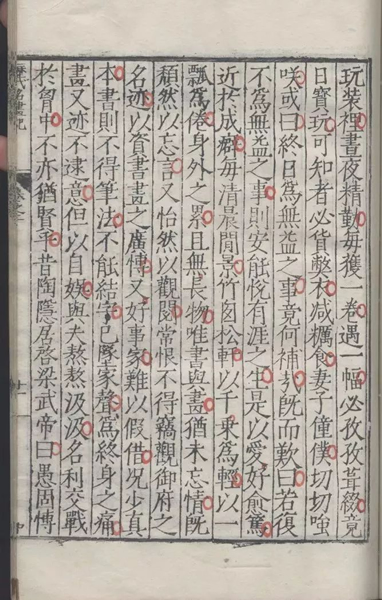 玩裝裡晝夜精勤每獲一卷遇一幅必孜孜葺綴竟
日寶玩可知者必貨弊衣減糲食妻子僮僕切切嗤
咲或曰終日爲無益之事竟何補哉既而歎曰若復
不爲無益之事則安能悅有涯之生是以愛好愈篤
近於成癖每清晨閒景竹囱松軒以千乘爲輕以一
瓢爲倦身外之累且無長物唯書與畫猶未忘情既
頹然以忘言又怡然以觀閱常恨不得竊觀御府之
名迹以資書畫之廣博又好事家難以假借況少真
本書則不得筆法不能結字已墜家聲爲終身之痛
畫又迹不逮意但以自娛與夫熬熬汲汲名利交戰
於胷中不亦猶賢乎昔陶隱居啓梁武帝曰愚固博
名畫記